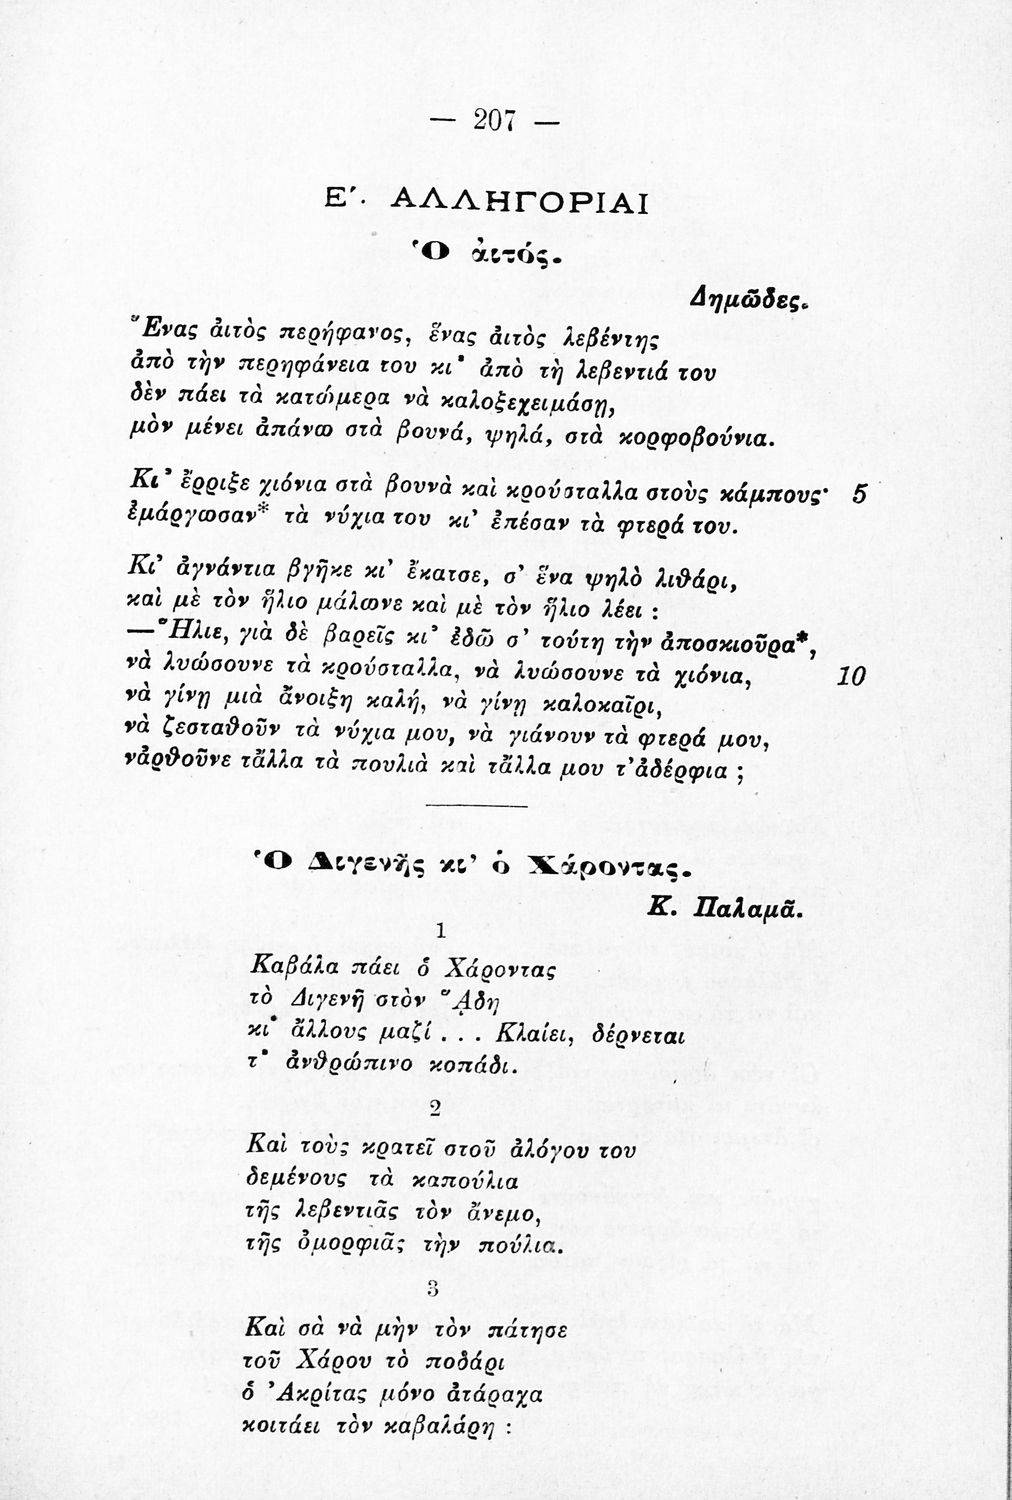 — 207 —
Ε΄. ΑΛΛΗΓΟΡΙΑΙ
Ὁ ἀιτός.
Δημῶδες.
Ἕνας ἀιτὸς περήφανος, ἕνας ἀιτὸς λεβέντης
ἀπὸ τὴν περηφάνεια του κι’ ἀπὸ τὴ λεβεντιά του
δὲν πάει τὰ κατώμερα νὰ καλοξεχειμάσῃ,
μὸν μένει ἀπάνω στὰ βουνά, ψηλά, στὰ κορφοβούνια.
Κι’ ἔρριξε χιόνια στὰ βουνὰ καὶ κρούσταλλα στοὺς κάμπους· 5
ἐμάργωσαν* τὰ νύχια του κι’ ἐπέσαν τὰ φτερά του.
Κι’ ἀγνάντια βγῆκε κι’ ἔκατσε, σ’ ἕνα ψηλὸ λιθάρι,
καὶ μὲ τὸν ἥλιο μάλωνε καὶ μὲ τὸν ἥλιο λέει :
—Ἥλιε, γιὰ δὲ βαρεῖς κι’ ἐδῶ σ’ τούτη τὴν ἀποσκιοῦρα*,
νὰ λυώσουνε τὰ κρούσταλλα, νὰ λυώσουνε τὰ χιόνια, 10
νὰ γίνῃ μιὰ ἄνοιξη καλή, νὰ γίνῃ καλοκαῖρι,
νὰ ζεσταθοῦν τὰ νύχια μου, νὰ γιάνουν τὰ φτερά μου,
νἀρθοῦνε τἄλλα τὰ πουλιὰ καὶ τἄλλα μου τ’ἀδέρφια ;
Ὁ Διγενῆς κι’ ὁ Χάροντας.
Κ. Παλαμᾶ.
1
Καβάλα πάει ὁ Χάροντας
τὸ Διγενῆ στὸν ᾍδη
κι’ ἄλλους μαζί . . . Κλαίει, δέρνεται
τ’ ἀνθρώπινο κοπάδι.
2
Καὶ τοὺς κρατεῖ στοῦ ἀλόγου του
δεμένους τὰ καπούλια
τῆς λεβεντιᾶς τὸν ἄνεμο,
τῆς ὀμορφιᾶς τὴν πούλια.
3
Καὶ σὰ νὰ μὴν τὸν πάτησε
τοῦ Χάρου τὸ ποδάρι
ὁ Ἀκρίτας μόνο ἀτάραχα
κοιτάει τὸν καβαλάρη :